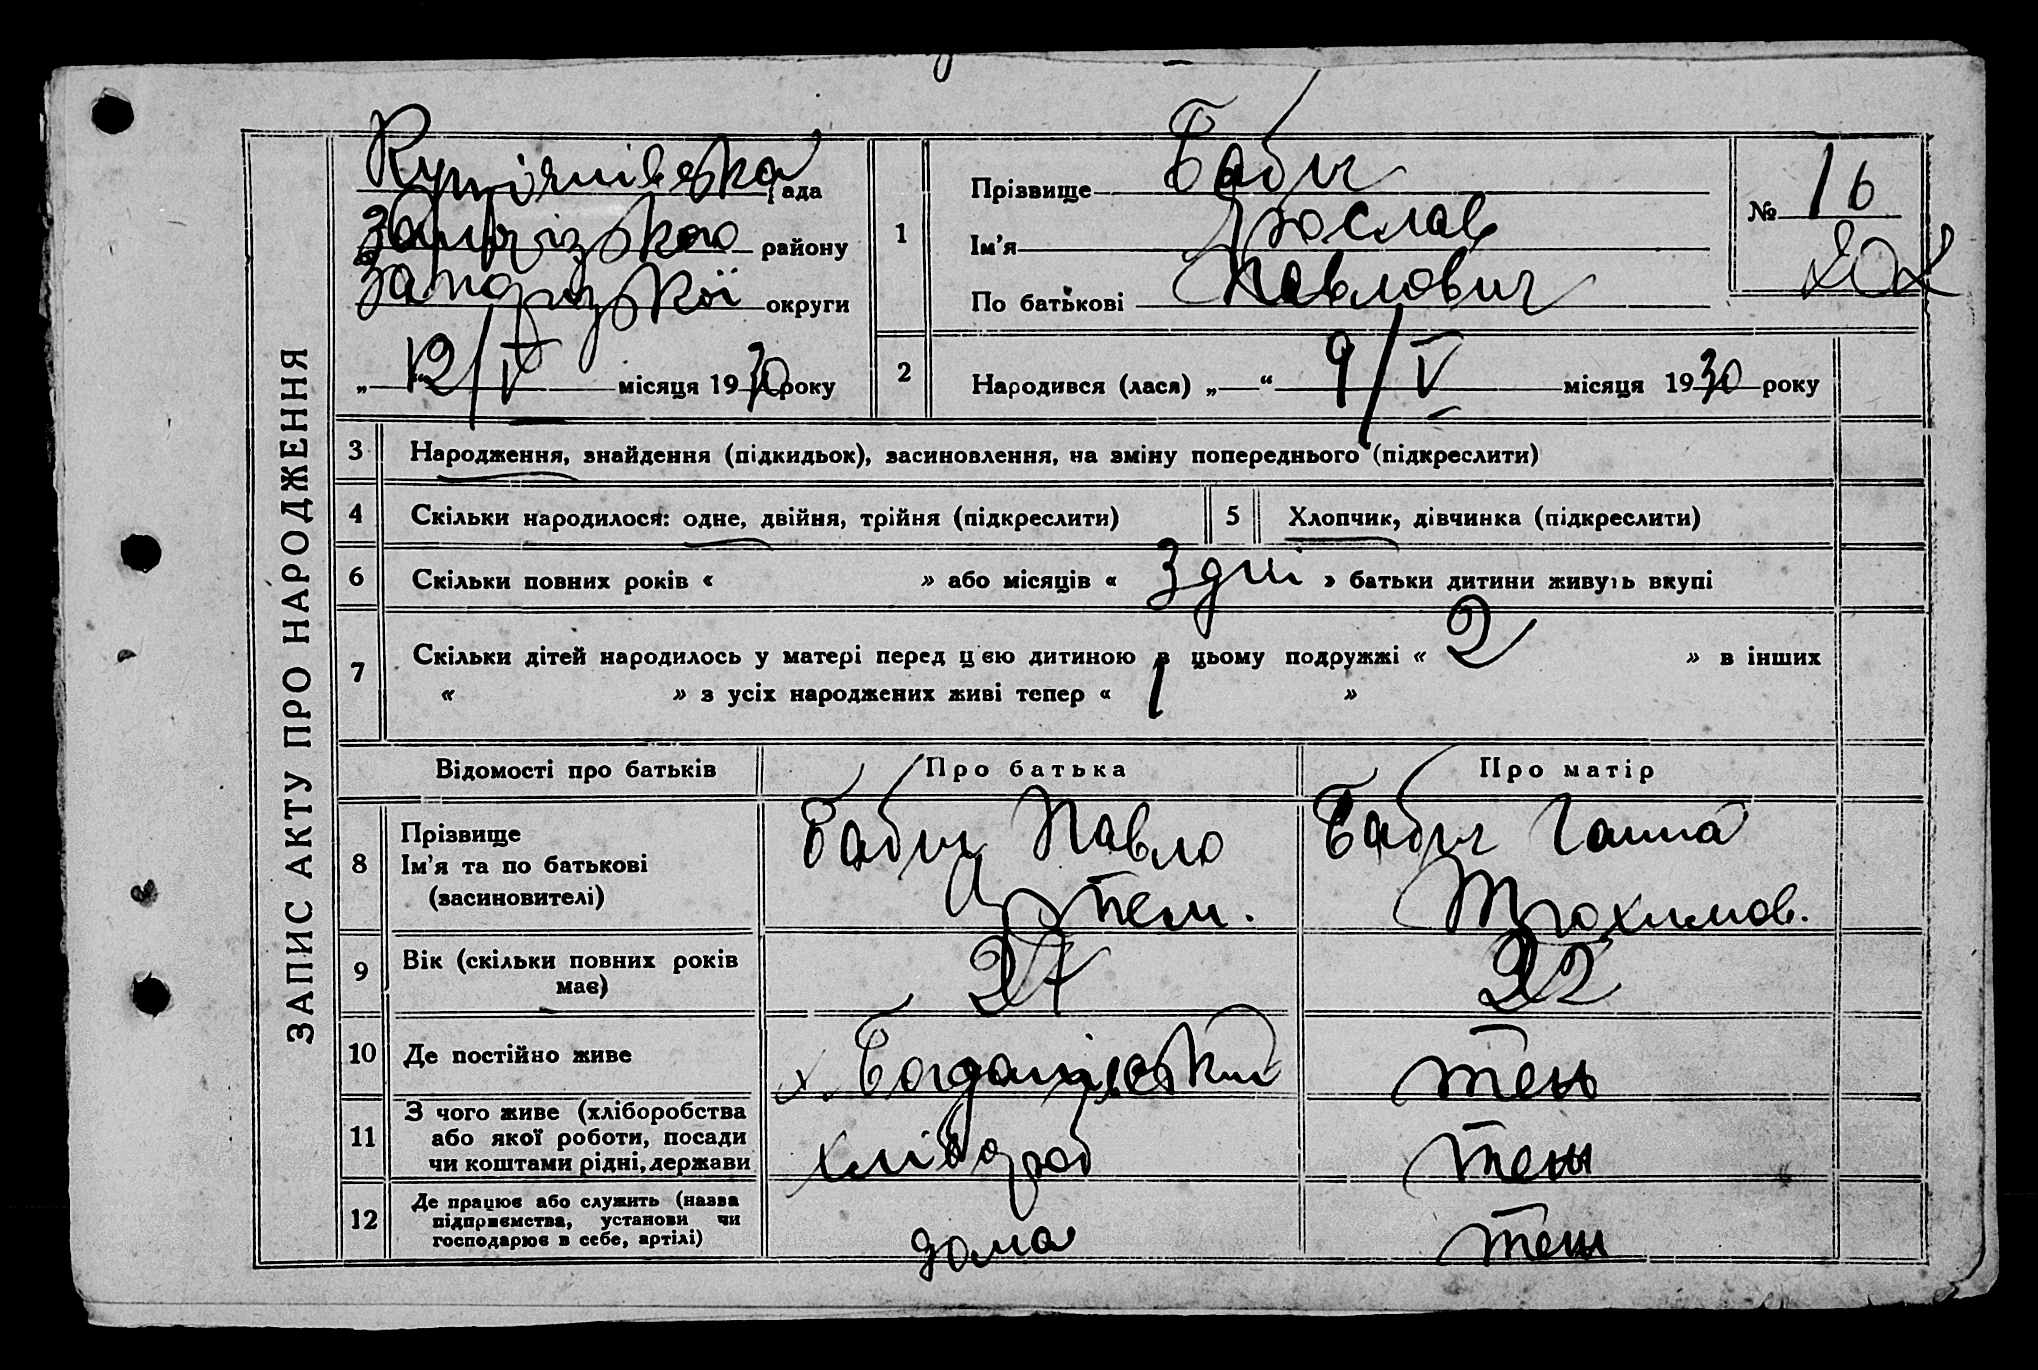 ЗАПИС АКТУ ПРО НАРОДЖЕННЯ
рада
Запорізького району
Запорізької округи
„ “ 12/V місяця 1930 року
1
Прізвище Бабич
Ім'я Ярослав
По батькові Павлович
№ 16
2
Народився (лася) „ “ 9/V місяця 1930 року
3 Народження, знайдення (підкидьок), засиновлення, на зміну попереднього (підкреслити)
4 Скільки народилося: одне, двійня, трійня (підкреслити)
5 Хлопчик, дівчинка (підкреслити)
6 Скільки повних років « » або місяців « 3 дні » батьки дитини живуть вкупі
7 Скільки дітей народилось у матері перед цією дитиною в цьому подружжі « 2 » в інших
« » з усіх народжених живі тепер « 1 »
Відомості про батьків Про батька Про матір
8 Прізвище
Ім'я та по батькові
(засиновителі)
Бабич Павло
Артем.
Бабич Ганна
Трохимов.
9 Вік (скільки повних років
має)
27
22
10 Де постійно живе
х. Богданівський
теж
11 З чого живе (хліборобства
або якої роботи, посади
чи коштами рідні, держави
хлібороб
теж
12 Де працює або служить (назва
підприємства, установи чи
господарює в себе, артілі)
дома
теж